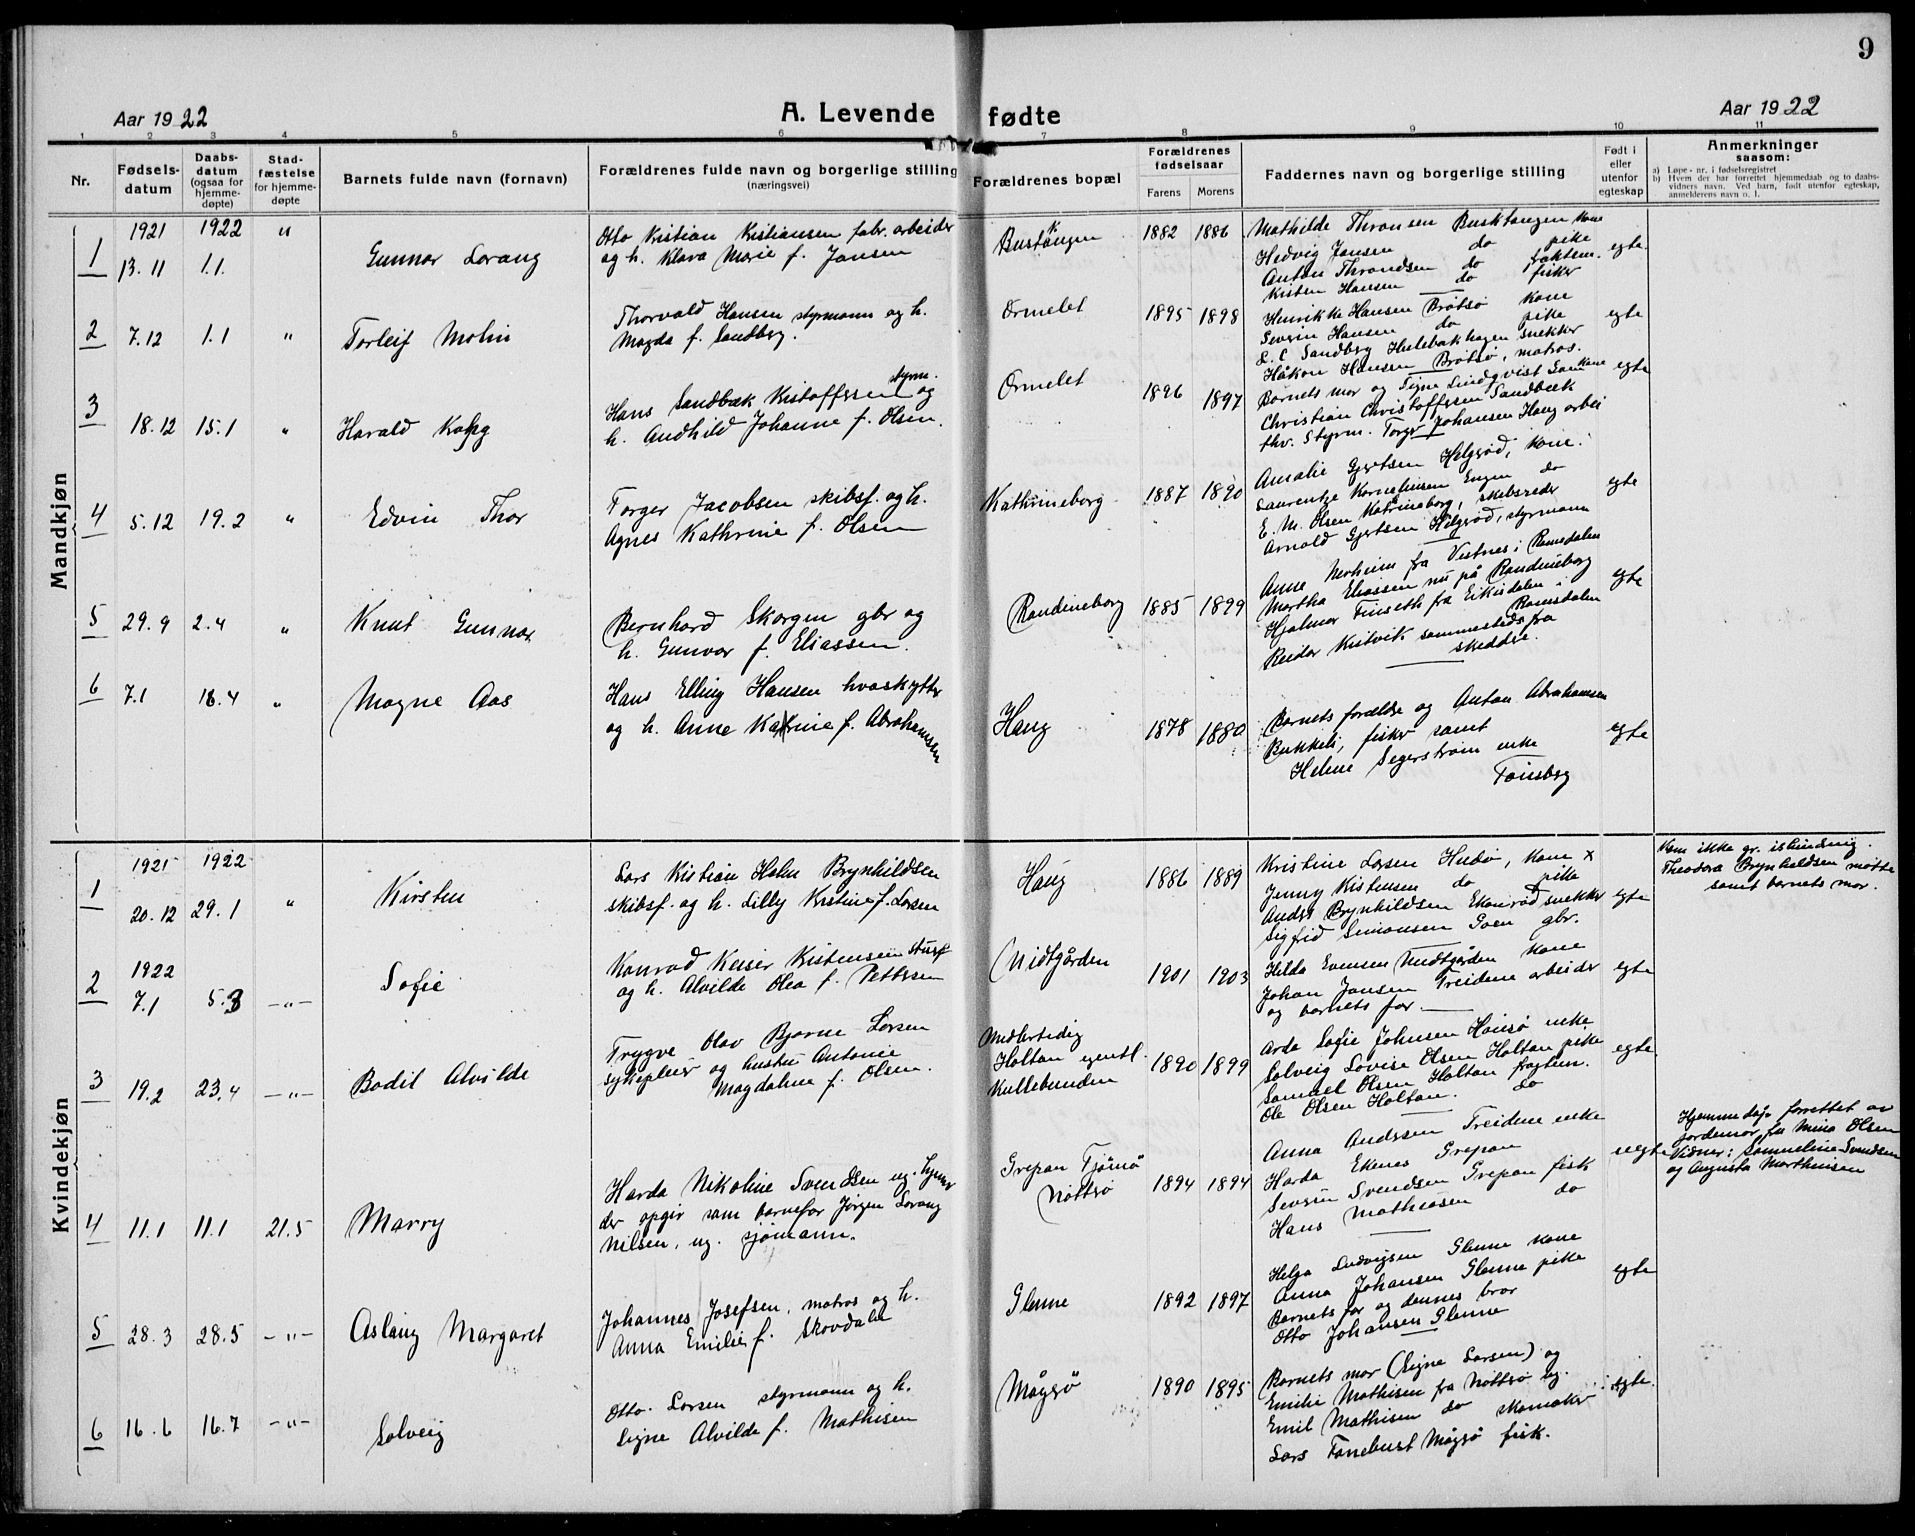 9
Aar 1922
A. Levende fødte
Aar 1922
1 2 3 4 5 6 7 8 9 10 11
Nr.
Fødsels-datum
Daabs-datum (ogsaa for hjemme-døpte)
Stad-fæstelse for hjemme-døpte
Barnets fulde navn (fornavn)
Forældrenes fulde navn og borgerlige stilling (næringsvei)
Forældrenes bopæl
Forældrenes fødselsaar
Farens Morens
Faddernes navn og borgerlige stilling
Født i eller utenfor egteskap
Anmerkninger saasom:
a) Løpe-nr. i fødselsregistret
b) Hvem der har forrettet hjemmedaab og to daabs-vidners navn. Ved barn, født utenfor egteskap, anmelderens navn o. l.
Mandkjøn
1
1921 1922 "
13.11 1.1.
Gunnar Lorang
Otto Kristian Kristiansen fabr. arbeider
og h. Klara Marie f. Jansen
Busktangen
1882 1886
Mathilde Thronsen Busktangen kone
Hedvig Jansen do pike
Anton Throndsen do
Kisten Hansen do fisker
egte
2
7.12 1.1 "
Torleif Molin
Thorvald Hansen styrmann og h.
Magda f. Sandberg.
Ormelet
1895 1898
Henrikke Hansen Brøtsø kone
Severin Hansen do pike
L. C. Sandberg Hulebakhagen snekker
Håkon Hansen Brøtsø, matros.
egte
3
18.12 15.1 "
Harald
Hans Sandbæk Kistoffersen styrm. og
h. Andhild Johanne f. Olsen.
Ormelet
1896 1897
Barnets mor og Signe Lindqvist kone
Christian Christoffersen Sandbæk
thv. Styrm. Torger Johansen Haug arbei
egte
4
5.12 19.2 "
Edvin Thor
Torger Jacobsen skibsf. og h.
Agnes Kathrine f. Olsen
Kathrineborg
1887 1890
Amalie Gjertsen Helgerød, kone.
Laurentze Korneliusen Engen do
E. M. Olsen Katrineborg, skibsreder
Arnold Gjertsen Helgerød, styrmann
egte
5
29.9 2.4 "
Knut Gunnar
Bernhard Skorgen gbr og
h. Gunvor f. Eliassen.
Randineborg
1885 1899
Anne Norheim fra Vestnes i Romsdalen
Martha Eliassen nu på Randineborg
Hjalmar Finseth fra Eikisdalen i Romsdalen
Reidar Kistvik sammesteds fra
skredder.
egte
6
7.1 16.4 "
Magne Aas
Hans Elling Hansen hvalskytter
og h. Anne Katrine f. Abrahamsen
Haug
1878 1880
Barnets forældre og Anton Abrahamsen
Bukkeli, fisker samt
Helene Segerstrøm enke
Tønsberg
egte
Kvindekjøn
1
1921 1922
20.12 29.1 "
Kirsten
Lars Kistian Holm Brynhildsen
skibsf. og h. Lilly Kristine f. Larsen
Haug
1886 1889
Kristine Larsen Hudø, kone x
Jenny Kistensen do pike
Anders Brynhildsen Ekenrød snekker
Sigfrid Simonsen Goen gbr.
egte
Kom ikke gr. ishindring.
Theodora Brynhildsen møtte
samt barnets mor.
2
1922
7.1 5.3 —"—
Sofie
Konrad Keiser Kistensen
og h. Alvilde Olea f. Pettersen
Midtgården
1901 1903
Hilda Evensen Midtgården kone
Johan Jansen Treidene arbeider
og barnets far.
egte
3
19.2 23.4 —"—
Bodil Alvilde
Trygve Olav Bjarne Larsen
sykepleier og hustru Antonie
Magdalene f. Olsen.
Midlertidig
Holtan egentl.
Kullebunden
1890 1899
Arda Sofie Johnsen enke
Solveig Lovise Olsen Holtan pike
Samuel Olsen Holtan fragtem.
Ole Olsen Holtan. do
egte.
4
11.1 11.1 21.5
Marry
Harda Nikoline Svendsen ug. hjemme
der opgir som barnefar Jørgen Lorang
Nilsen, ug. sjømann.
Grepan Tjømø
Nøttrø
1894 1894
Anna Andersen Treidene enke
Harda Ekenes Grepan
Severin Svendsen Grepan fisk
Hans Mathiasen do
uegte
Hjemmedåp forrettet av
jordemor fru Mina Olsen
Vidner: Sammeline Svendsen
og Augusta Marthinsen
5
28.3 28.5 —"—
Aslaug Margaret
Johannes Josefsen, matros og h.
Anna Emilie f. Skovdahl
Glenne
1892 1897
Helga Ludvigsen Glenne kone
Anna Johansen Glenne pike
Barnets far og dennes bror
Otto Johansen Glenne
egte
6
16.6 16.7 —"—
Solveig
Otto Larsen styrmann og h.
Signe Alvilde f. Mathisen
Mågerø
1890 1895
Barnets mor (Signe Larsen) og
Emilie Mathisen fra Nøtterø ug.
Emil Mathisen do skomaker
Lars Mågerø fisk.
egte.